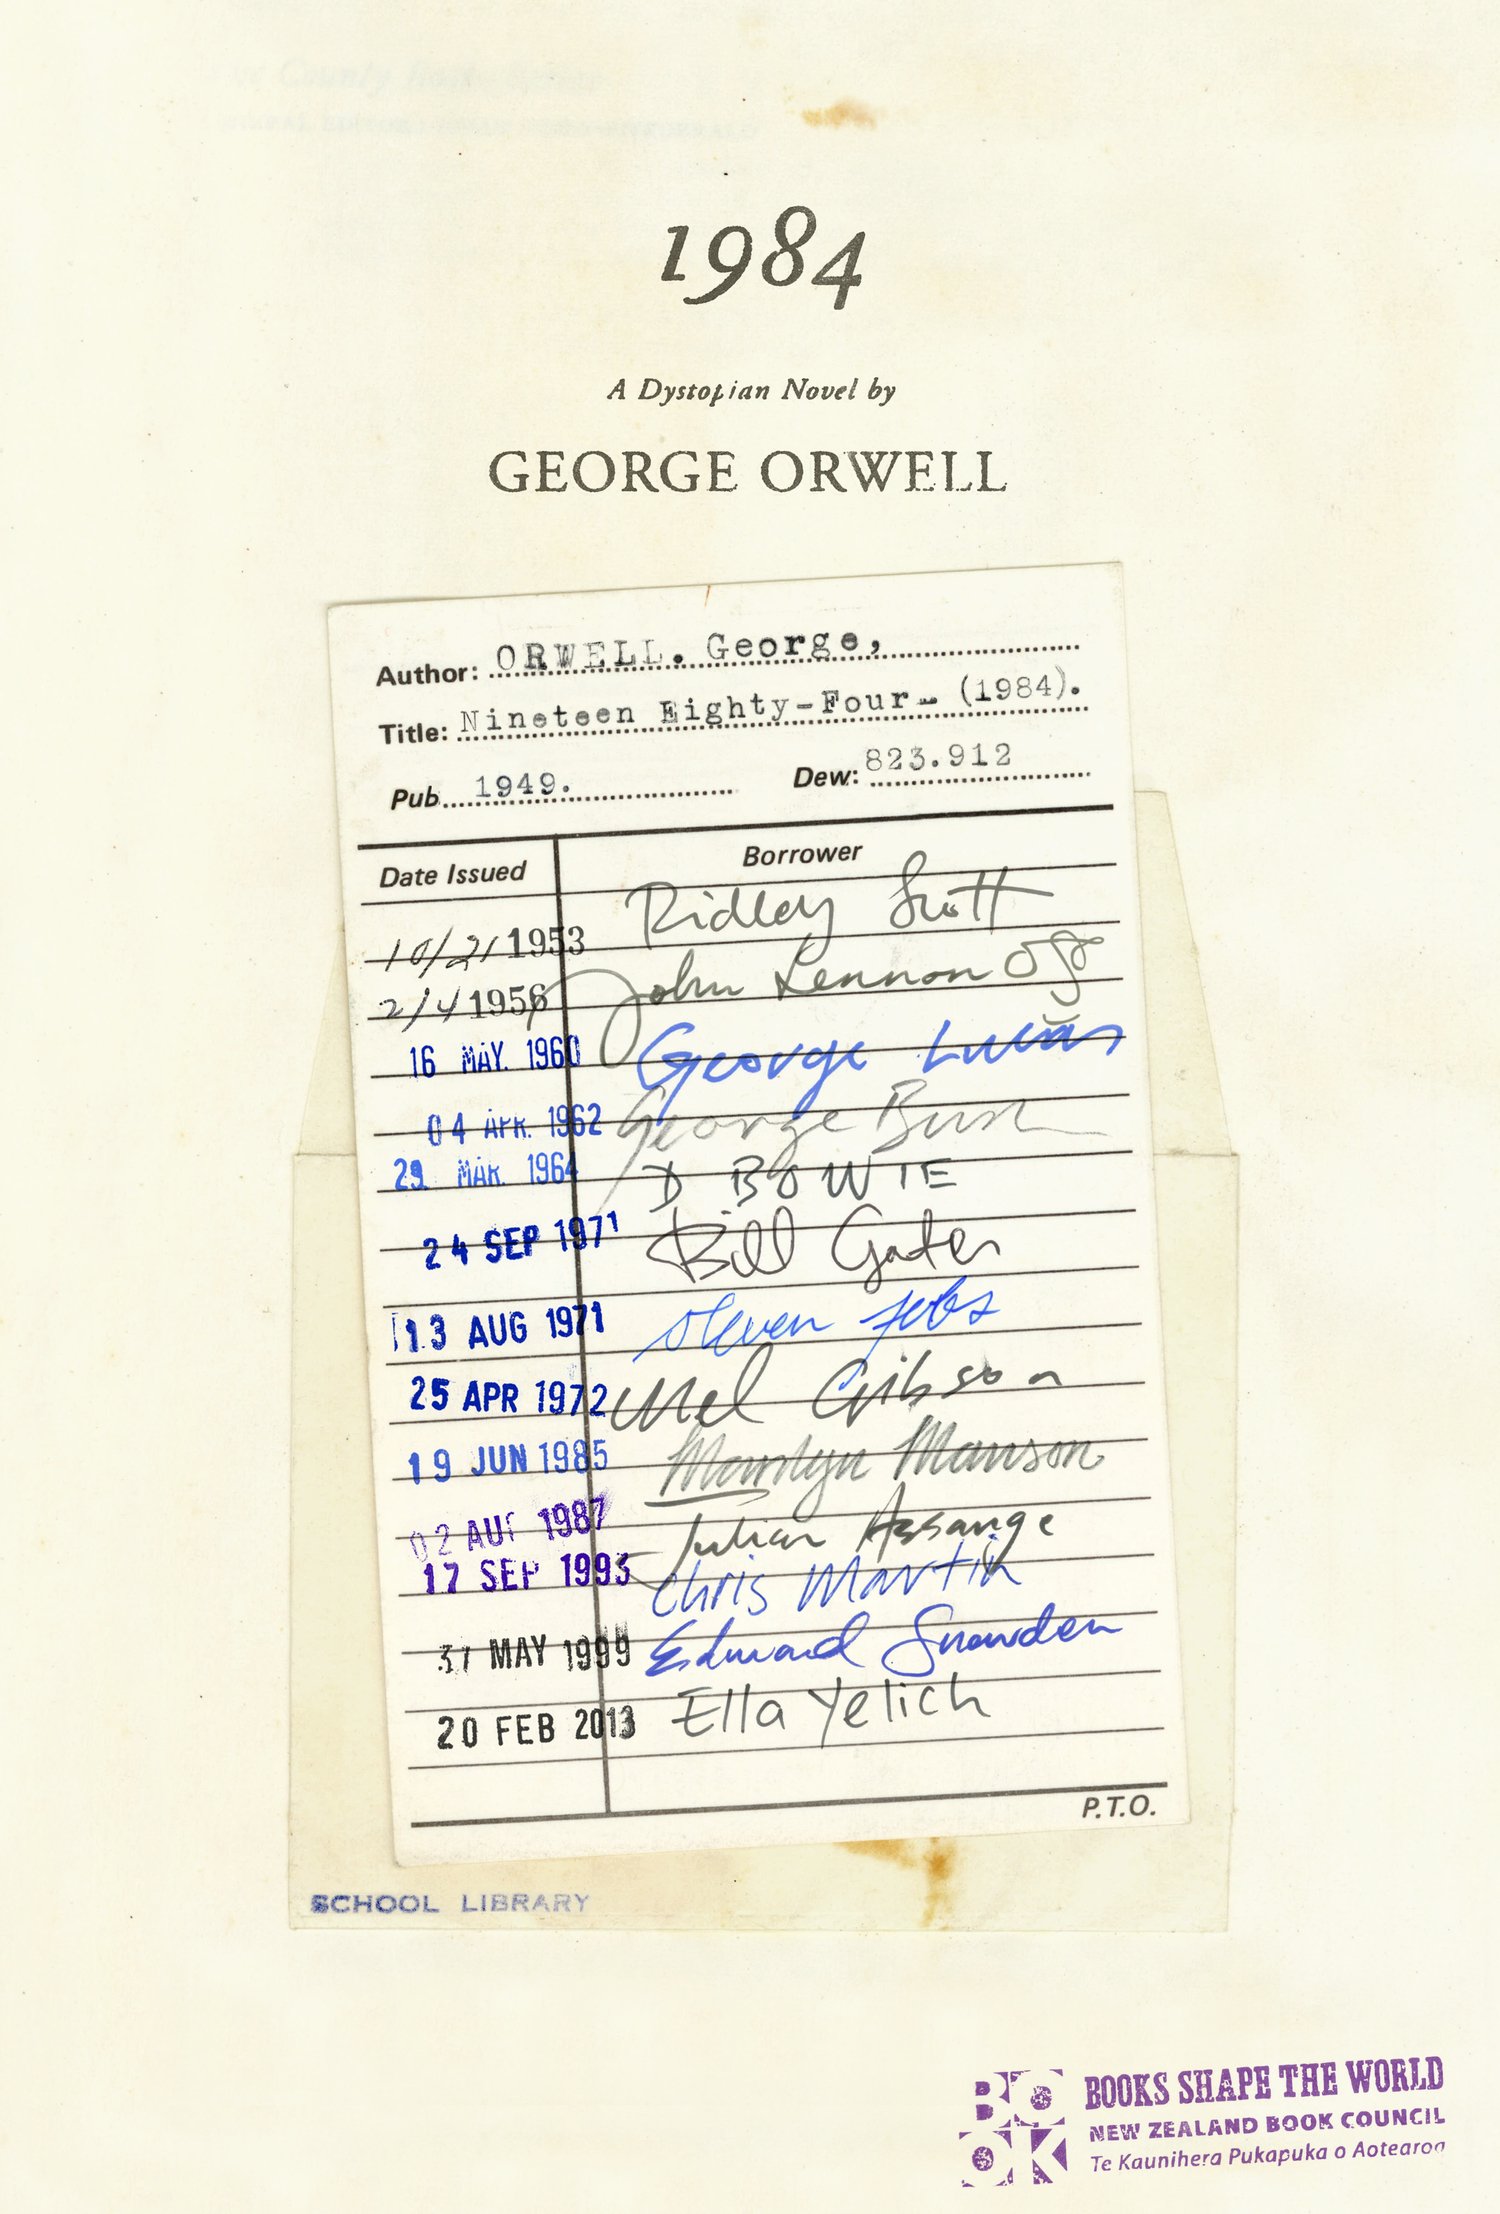 1984
A Dystopian Novel by
GEORGE ORWELL
Author: ORWELL. George,
Title: Nineteen Eighty-Four- (1984).
Pub 1949. Dew: 823.912
Date Issued Borrower
10/21 1953 Ridley Scott
2/4 1956 John Lennon
16 MAY. 1960 George Lucas
04 APR. 1962 George Bush
29 MAR. 1964 D BOWIE
24 SEP 1971 Bill Gates
13 AUG 1971 Steven Jobs
25 APR 1972 Mel Gibson
19 JUN 1985 Marilyn Manson
02 AUG 1987 Julian Assange
17 SEP 1993 Chris Martin
31 MAY 1999 Edward Snowden
20 FEB 2013 Ella Yelich
P.T.O.
SCHOOL LIBRARY
BOOK
BOOKS SHAPE THE WORLD
NEW ZEALAND BOOK COUNCIL
Te Kaunihera Pukapuka o Aotearoa